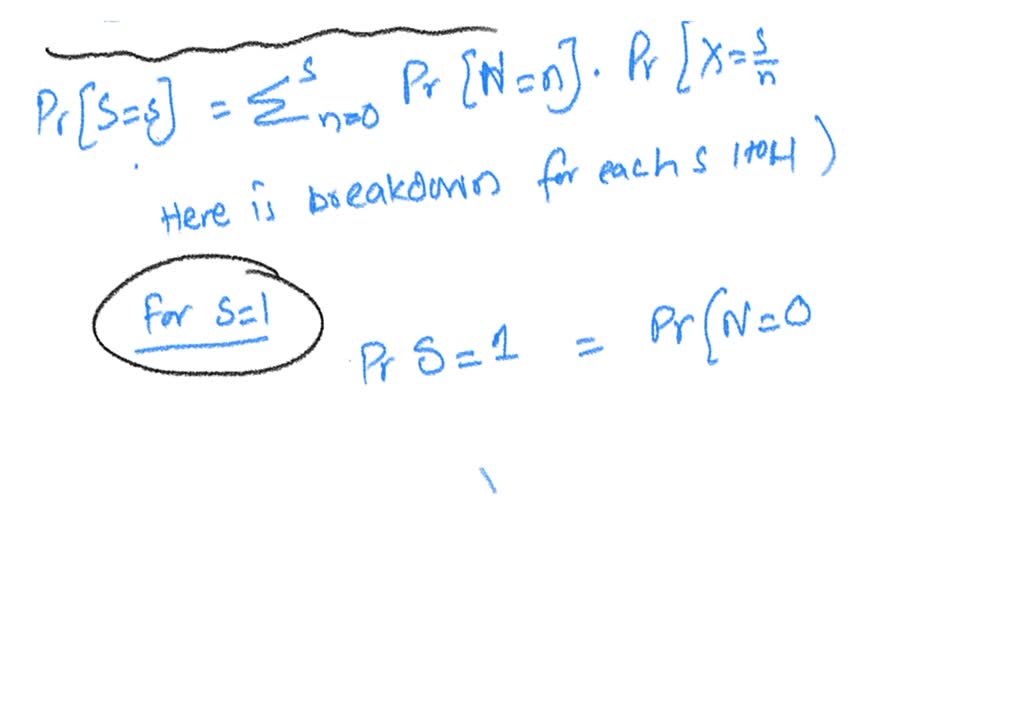 Pr[S=s] = Σ^s_{n=0} Pr [N=n]. Pr [X=s/n
Here is breakdown for each s 1to4)
For S=1
Pr S=1 = Pr[N=0